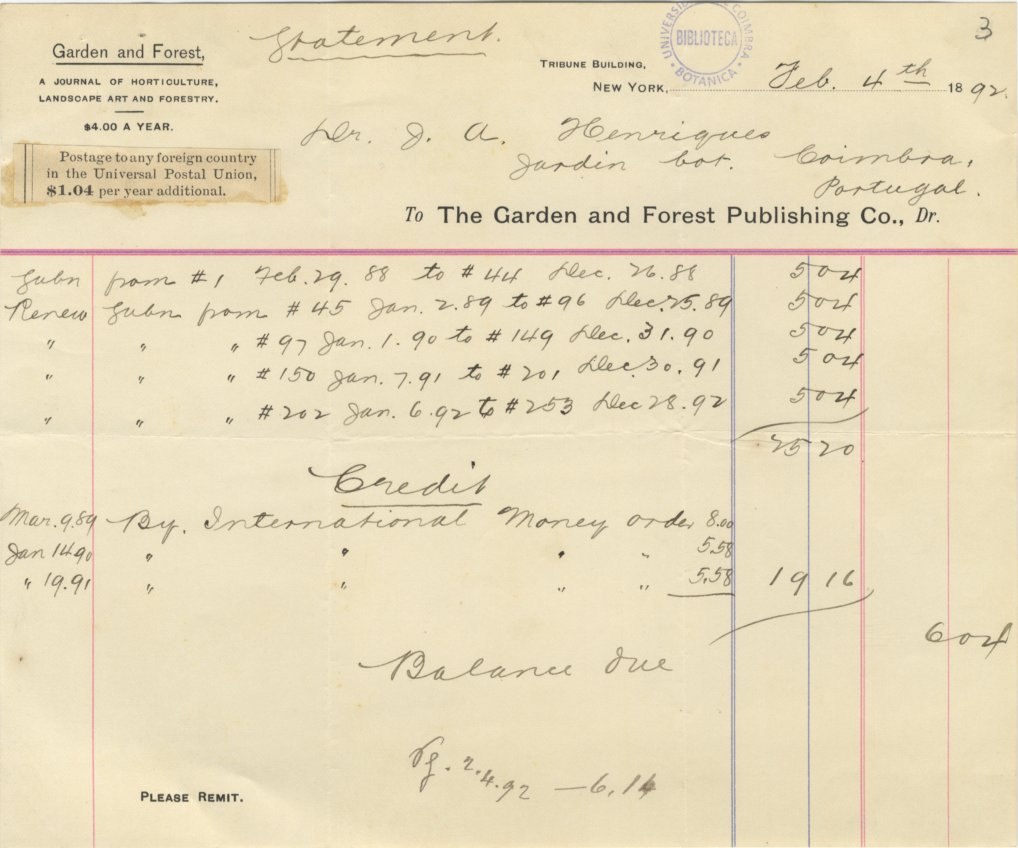 3
Statement.
Garden and Forest,
A JOURNAL OF HORTICULTURE,
LANDSCAPE ART AND FORESTRY.
$4.00 A YEAR.
Postage to any foreign country
in the Universal Postal Union,
$1.04 per year additional.
UNIVERSIDADE DE COIMBRA
BIBLIOTECA
BOTANICA
TRIBUNE BUILDING,
NEW YORK, Feb. 4th 1892.
Dr. J. A. Henriques
Jardin bot. Coimbra,
Portugal.
To The Garden and Forest Publishing Co., Dr.
Subn from #1 Feb. 29. 88 to #44 Dec. 26. 88 5 04
Renew Subn from #45 Jan. 2. 89 to #96 Dec. 25. 89 5 04
" " " #97 Jan. 1. 90 to #149 Dec. 31. 90 5 04
" " " #150 Jan. 7. 91 to #201 Dec. 30. 91 5 04
" " " #202 Jan. 6. 92 to #253 Dec 28. 92 5 04
25 20
Credit
Mar. 9. 89 By. International Money order 8.00
Jan 14 90 " " " " 5.58
" 19. 91 " " " " 5.58 19 16
6 04
Balance due
2.4.92 — 6.14
PLEASE REMIT.